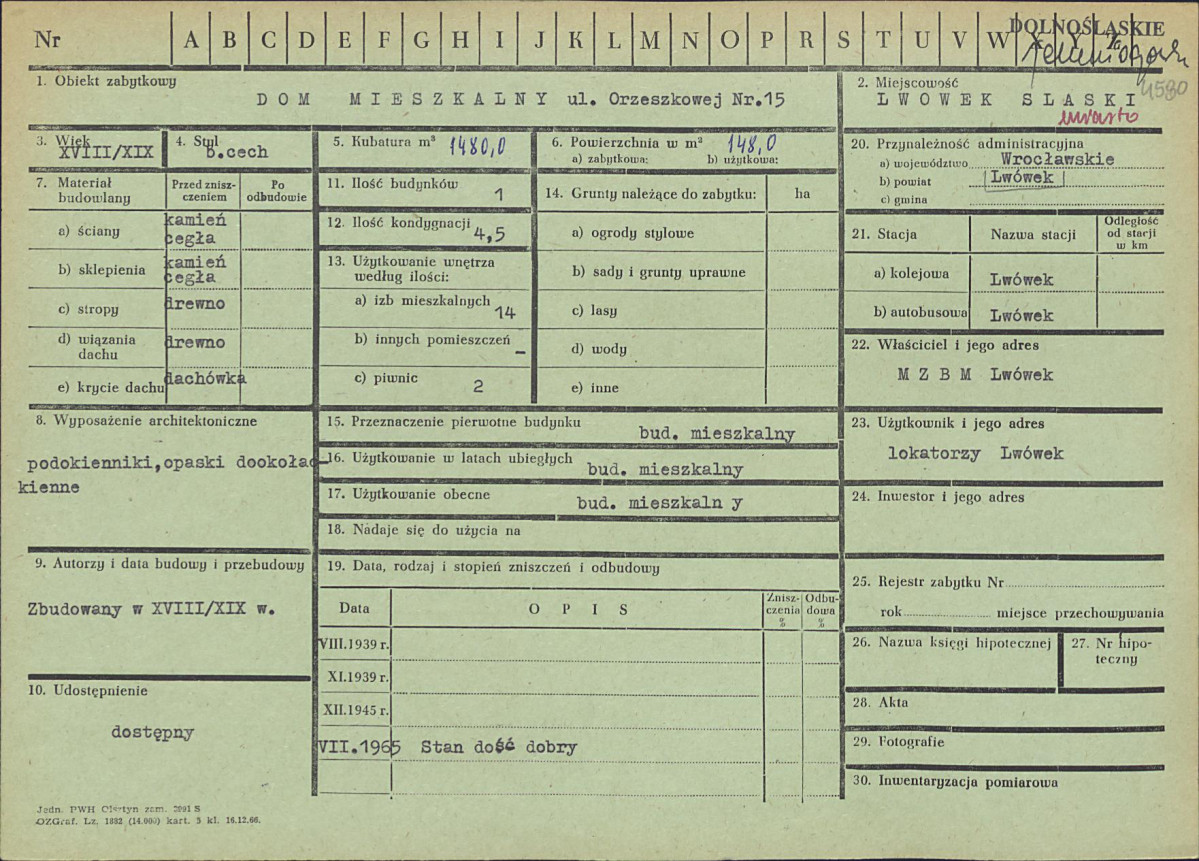 DOLNOŚLĄSKIE
Nr A B C D E F G H I J K L M N O P R S T U V W X Y Z
4580
1. Obiekt zabytkowy
DOM MIESZKALNY ul. Orzeszkowej Nr.15
2. Miejscowość
LWOWEK SLASKI
miasto
3. Wiek
XVIII/XIX
4. Styl
b.cech
5. Kubatura m³ 1480,0
6. Powierzchnia w m² 148,0
a) zabytkowa: b) użytkowa:
7. Materiał budowlany
Przed zniszczeniem
Po odbudowie
a) ściany kamień cegła
b) sklepienia kamień cegła
c) stropy drewno
d) wiązania dachu drewno
e) krycie dachu dachówka
8. Wyposażenie architektoniczne
podokienniki,opaski dookoła o-
kienne
9. Autorzy i data budowy i przebudowy
Zbudowany w XVIII/XIX w.
10. Udostępnienie
dostępny
11. Ilość budynków 1
12. Ilość kondygnacji 4,5
13. Użytkowanie wnętrza
według ilości:
a) izb mieszkalnych 14
b) innych pomieszczeń –
c) piwnic 2
14. Grunty należące do zabytku: ha
a) ogrody stylowe
b) sady i grunty uprawne
c) lasy
d) wody
e) inne
15. Przeznaczenie pierwotne budynku
bud. mieszkalny
16. Użytkowanie w latach ubiegłych
bud. mieszkalny
17. Użytkowanie obecne
bud. mieszkaln y
18. Nadaje się do użycia na
19. Data, rodzaj i stopień zniszczeń i odbudowy
Data OPIS Zniszczenia % Odbudowa %
VIII.1939 r.
XI.1939 r.
XII.1945 r.
VII.1965 Stan dość dobry
20. Przynależność administracyjna
a) województwo Wrocławskie
b) powiat Lwówek
c) gmina
21. Stacja Nazwa stacji Odległość od stacji w km
a) kolejowa Lwówek
b) autobusowa Lwówek
22. Właściciel i jego adres
M Z B M Lwówek
23. Użytkownik i jego adres
lokatorzy Lwówek
24. Inwestor i jego adres
25. Rejestr zabytku Nr
rok miejsce przechowywania
26. Nazwa księgi hipotecznej
27. Nr hipoteczny
28. Akta
29. Fotografie
30. Inwentaryzacja pomiarowa
Jedn. PWH Olsztyn zam. 2091 S
OZGraf. Lz. 1882 (14.000) kart. 3 kl. 16.12.66.